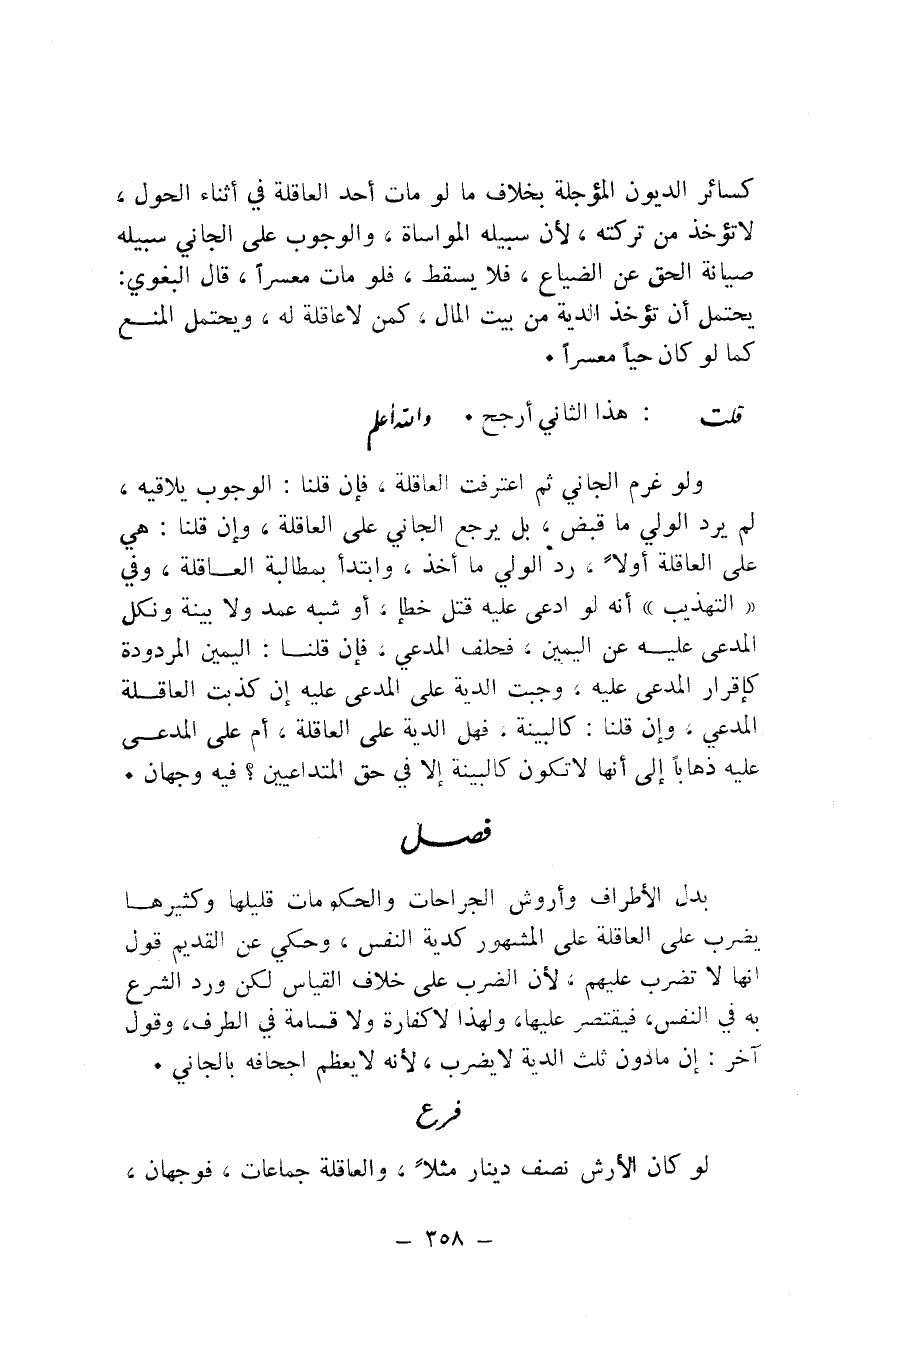 كسائر الديون المؤجلة بخلاف ما لو مات أحد العاقلة في أثناء الحول ،
لاتؤخذ من تركته ، لأن سبيله المواساة ، والوجوب على الجاني سبيله
صيانة الحق عن الضياع ، فلا يسقط ، فلو مات معسراً ، قال البغوي:
يحتمل أن تؤخذ الدية من بيت المال ، كمن لاعاقلة له ، ويحتمل المنـــع
كما لو كان حياً معسراً .
قلت : هذا الثاني أرجح . والله أعلم
ولو غرم الجاني ثم اعترفت العاقلة ، فإن قلنا : الوجوب يلاقيه ،
لم يرد الولي ما قبض ، بل يرجع الجاني على العاقلة ، وإن قلنا : هي
على العاقلة أولاً ، ردّ الولي ما أخذ ، وابتدأ بمطالبة العـــاقلة ، وفي
« التهذيب » أنه لو ادعى عليه قتل خطإ ، أو شبه عمد ولا بينة ونكل
المدعى عليـــه عن اليمين ، فحلف المدعي ، فإن قلنـــا : اليمين المردودة
كإقرار المدعى عليه ، وجبت الدية على المدعى عليه إن كذبت العاقـــلة
المدعي ، وإن قلنا : كالبينة ، فهل الدية على العاقلة ، أم على المدعـــى
عليه ذهاباً إلى أنها لاتكون كالبينة إلا في حق المتداعيين ؟ فيه وجهان .
فصـــل
بدل الأطراف وأروش الجراحات والحكومات قليلها وكثيرهـــا
يضرب على العاقلة على المشهور كدية النفس ، وحكي عن القديم قول
انها لا تضرب عليهم ، لأن الضرب على خلاف القياس لكن ورد الشرع
به في النفس، فيقتصر عليها، ولهذا لاكفارة ولا قسامة في الطرف، وقول
آخر : إن مادون ثلث الدية لايضرب ، لأنه لايعظم اجحافه بالجاني .
فرع
لو كان الأرش نصف دينار مثلاً ، والعاقلة جماعات ، فوجهان ،
– ٣٥٨ –